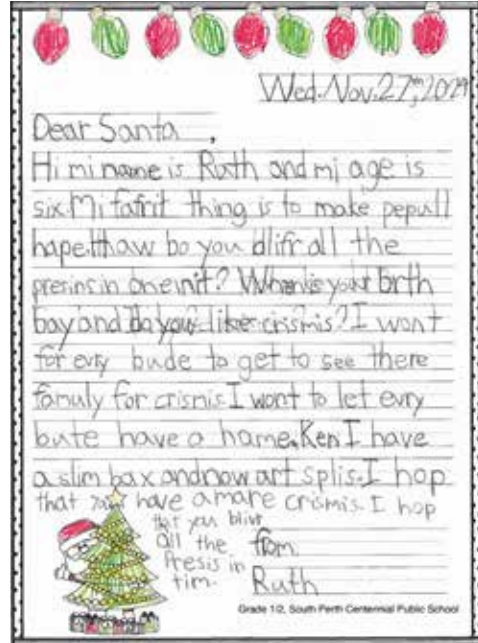 Wed. Nov. 27th, 2024
Dear Santa ,
Hi mi name is Ruth and mi age is
six. Mi fafrit thing is to make pepull
hape. Haw bo you dlifr all the
presins in one nit? When is your brth
bay and Do you like crismis? I wont
for evry bude to get to see there
famuly for crismis I wont to let evry
bute have a home. Ken I have
a slim bax and now art splis. I hop
that you have a mare crismis. I hop
that you blivr
all the
Presis in
tim.
from
Ruth
Grade 1/2, South Perth Centennial Public School